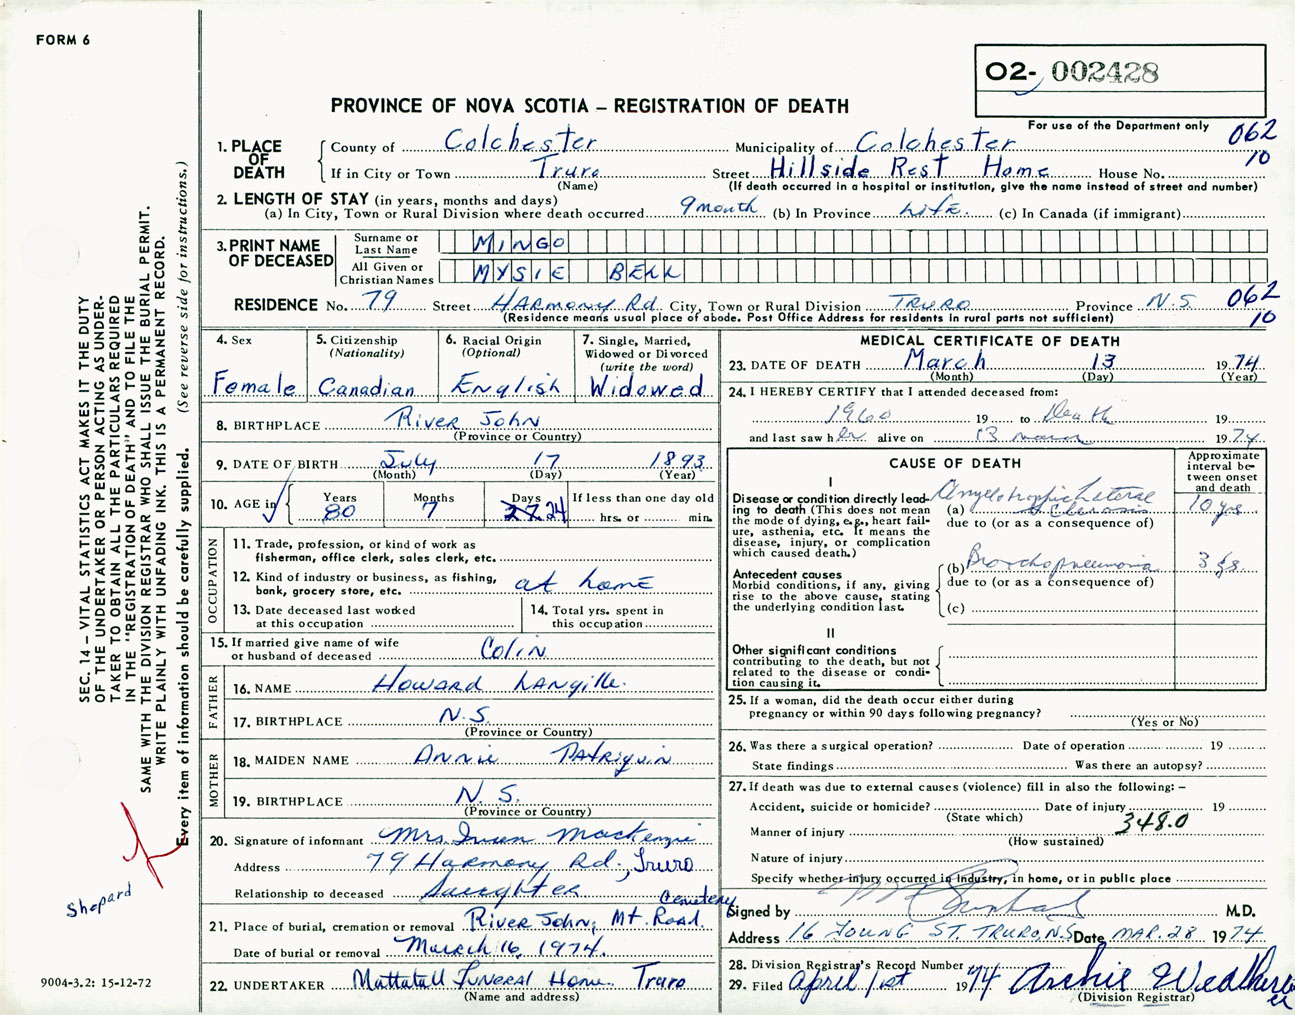 FORM 6
O2- 002428
PROVINCE OF NOVA SCOTIA – REGISTRATION OF DEATH
For use of the Department only 062
10
1. PLACE OF DEATH
County of Colchester Municipality of Colchester
If in City or Town Truro Street Hillside Rest Home House No.
(Name) (If death occurred in a hospital or institution, give the name instead of street and number)
2. LENGTH OF STAY (in years, months and days)
(a) In City, Town or Rural Division where death occurred 9 month (b) In Province Life. (c) In Canada (if immigrant)
3. PRINT NAME OF DECEASED
Surname or Last Name MINGO
All Given or Christian Names MYSIE BELL
RESIDENCE No. 79 Street HARMONY Rd. City, Town or Rural Division TRURO Province N.S. 062
10
(Residence means usual place of abode. Post Office Address for residents in rural parts not sufficient)
4. Sex
Female
5. Citizenship
(Nationality)
Canadian
6. Racial Origin
(Optional)
English
7. Single, Married,
Widowed or Divorced
(write the word)
Widowed
8. BIRTHPLACE River John
(Province or Country)
9. DATE OF BIRTH July 17 1893
(Month) (Day) (Year)
10. AGE in
Years Months Days If less than one day old
80 7 24 hrs. or min.
OCCUPATION
11. Trade, profession, or kind of work as
fisherman, office clerk, sales clerk, etc.
12. Kind of industry or business, as fishing,
bank, grocery store, etc. at home
13. Date deceased last worked
at this occupation
14. Total yrs. spent in
this occupation
15. If married give name of wife
or husband of deceased Colin
FATHER
16. NAME Howard Langille.
17. BIRTHPLACE N.S.
(Province or Country)
MOTHER
18. MAIDEN NAME Annie Patriquin
19. BIRTHPLACE N. S.
(Province or Country)
20. Signature of informant Mrs. MacKenzie
Address 79 Harmony Rd., Truro
Relationship to deceased Daughter
Cemetery
21. Place of burial, cremation or removal River John, Mt. Road.
Date of burial or removal March 16, 1974.
22. UNDERTAKER Mattatall Funeral Home. Truro
(Name and address)
MEDICAL CERTIFICATE OF DEATH
23. DATE OF DEATH March 13 1974
(Month) (Day) (Year)
24. I HEREBY CERTIFY that I attended deceased from:
1960 19 to Death 19
and last saw her alive on 13 march 1974
CAUSE OF DEATH
Approximate
interval be-
tween onset
and death
I
Disease or condition directly lead-
ing to death (This does not mean
the mode of dying, e.g., heart fail-
ure, asthenia, etc. It means the
disease, injury, or complication
which caused death.)
(a) Amyotrophic Lateral
Sclerosis 10 yrs
due to (or as a consequence of)
Antecedent causes
Morbid conditions, if any, giving
rise to the above cause, stating
the underlying condition last.
(b) Bronchopneumonia
due to (or as a consequence of)
(c)
II
Other significant conditions
contributing to the death, but not
related to the disease or condi-
tion causing it.
25. If a woman, did the death occur either during
pregnancy or within 90 days following pregnancy?
(Yes or No)
26. Was there a surgical operation? Date of operation 19
State findings Was there an autopsy?
27. If death was due to external causes (violence) fill in also the following: –
Accident, suicide or homicide? Date of injury 19
(State which)
348.0
Manner of injury
(How sustained)
Nature of injury
Specify whether injury occurred in Industry, in home, or in public place
Signed by M.D.
Address 16 YOUNG ST. TRURO, N.S Date MAR. 28 1974
28. Division Registrar's Record Number
29. Filed April 1st 1974 Archie
(Division Registrar)
SEC. 14 – VITAL STATISTICS ACT MAKES IT THE DUTY
OF THE UNDERTAKER OR PERSON ACTING AS UNDER-
TAKER TO OBTAIN ALL THE PARTICULARS REQUIRED
IN THE "REGISTRATION OF DEATH" AND TO FILE THE
SAME WITH THE DIVISION REGISTRAR WHO SHALL ISSUE THE BURIAL PERMIT.
WRITE PLAINLY WITH UNFADING INK. THIS IS A PERMANENT RECORD.
Every item of information should be carefully supplied. (See reverse side for instructions.)
Shepard
9004-3.2: 15-12-72